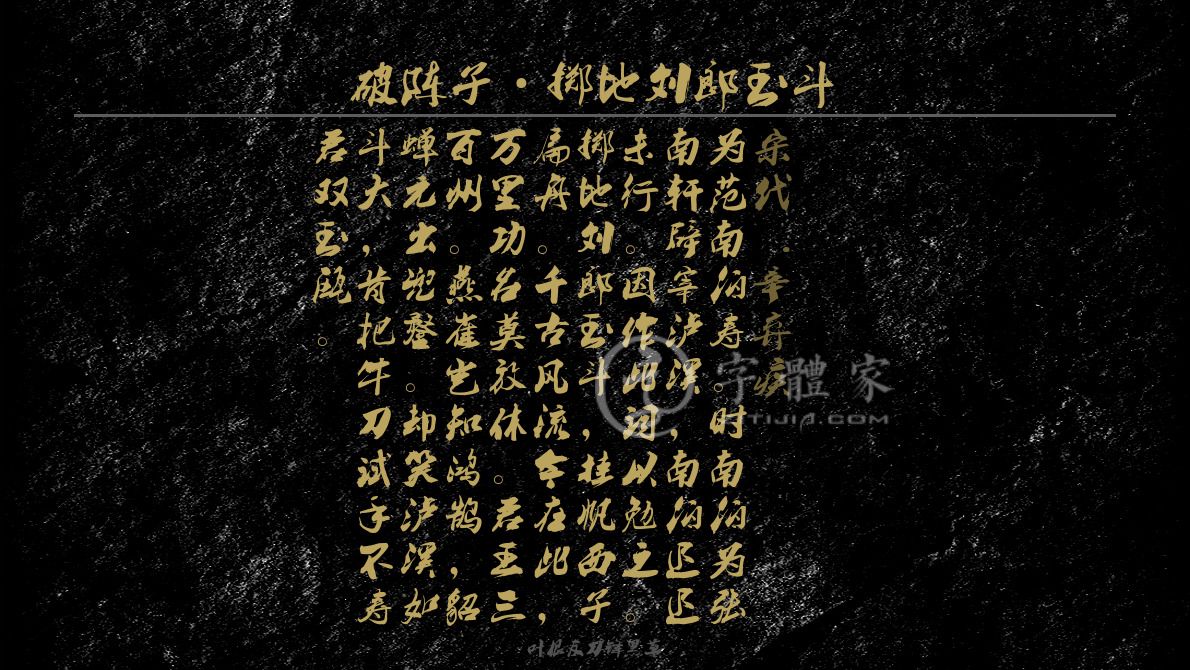 破阵子·掷地刘郎玉斗
宋代·辛弃疾
为范南伯寿。时南伯为张
南轩辟宰泸溪，南伯迟迟
未行。因作此词以勉之。
掷地刘郎玉斗，挂帆西子
扁舟。千古风流今在此，
万里功名莫放休。君王三
百州。燕雀岂知鸿鹄，貂
蝉元出兜鍪。却笑泸溪如
斗大，肯把牛刀试手不。寿
君双玉瓯。
字體家
ZITIJIA.COM
叶根友刀锋黑草